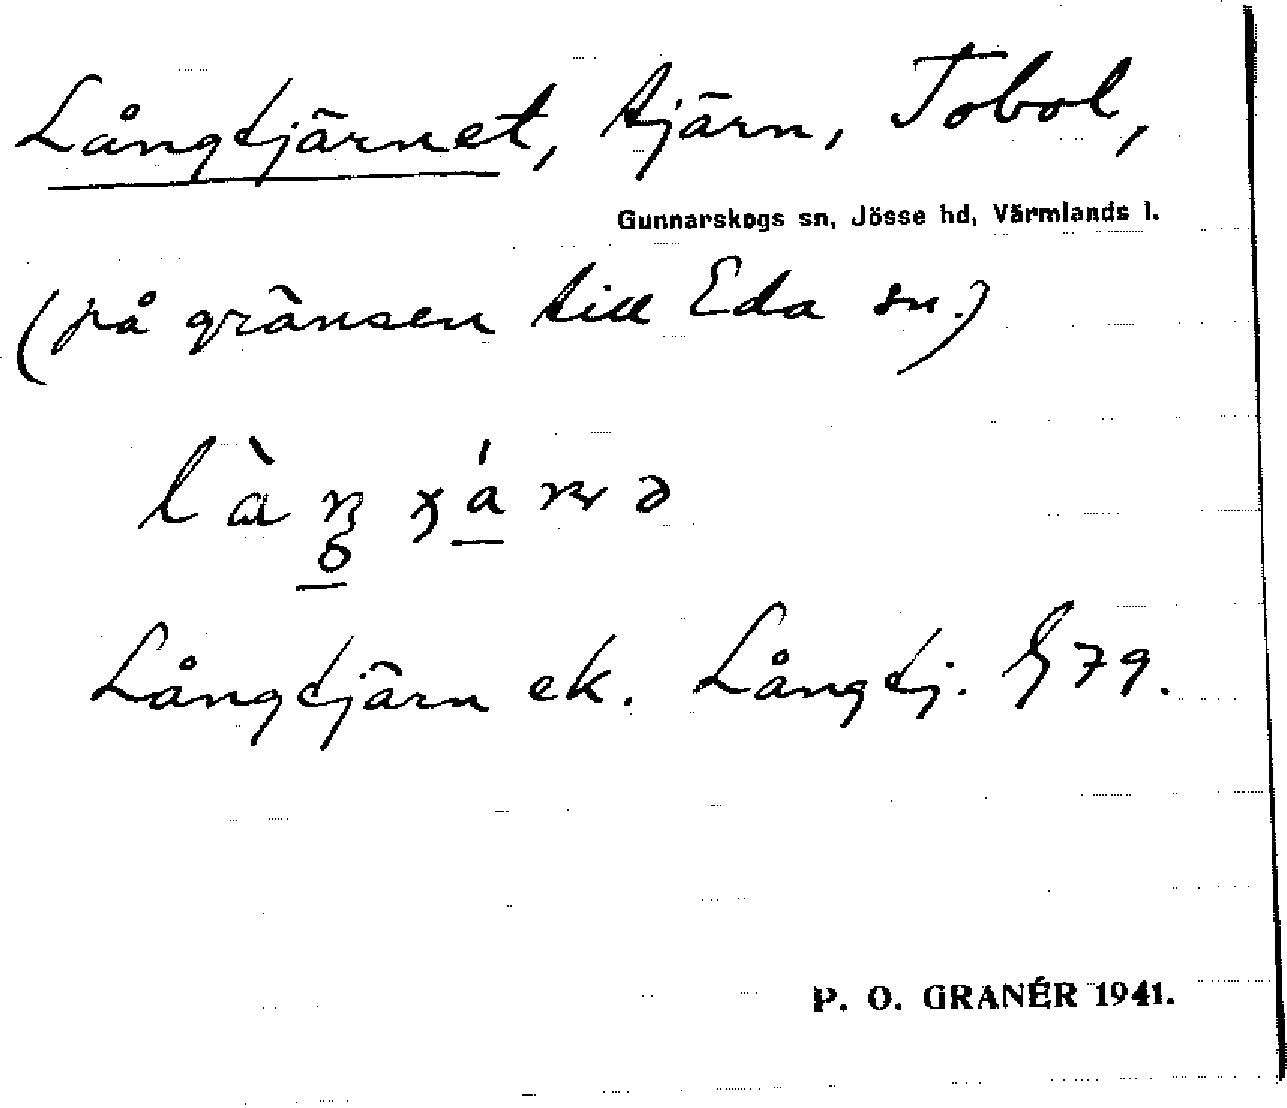 Långtjärnet, tjärn, Tobol,
Gunnarskogs sn, Jösse hd, Värmlands l.
(på gränsen till Eda sn.)
Långtjärn ek. Långtj. G79.
P. O. GRANÉR 1941.